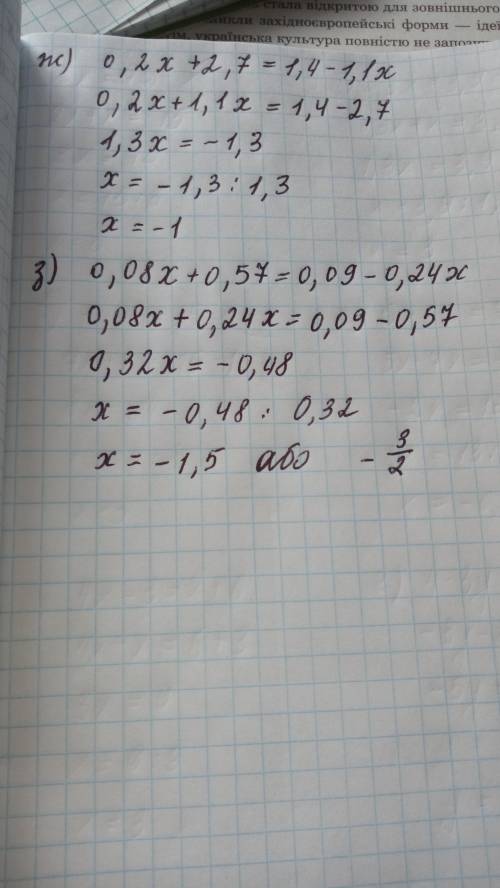 стала відкритою для зовнішнього
західноєвропейські форми — ідеї
українська культура повністю не
ж) 0,2x+2,7=1,4-1,1x
0,2x+1,1x=1,4-2,7
1,3x=-1,3
x=-1,3:1,3
x=-1
з) 0,08x+0,57=0,09-0,24x
0,08x+0,24x=0,09-0,57
0,32x=-0,48
x=-0,48:0,32
x=-1,5 або -3/2